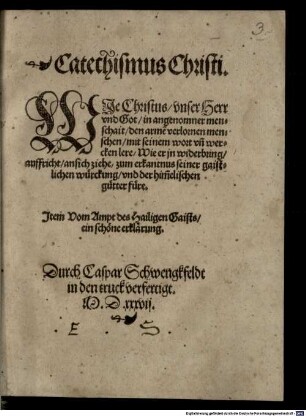 3
Catechismus Christi.
WIe Christus / vnser Herr
vnd Got / in angenomner men-
schait / den armē verlornen men-
schen / mit seinem wort vn̄ wer-
cken lere / Wie er jn widerbring /
auffricht / an sich ziehe / zum erkantnus seiner gaist-
lichen würckung / vnd der him̄elischen
gütter füre.
Item Vom Ampt des Hailigen Gaists /
ein schöne erklärung.
Durch Caspar Schwengkfeldt
in den truck verfertigt.
M. D. xxxvij.
E S